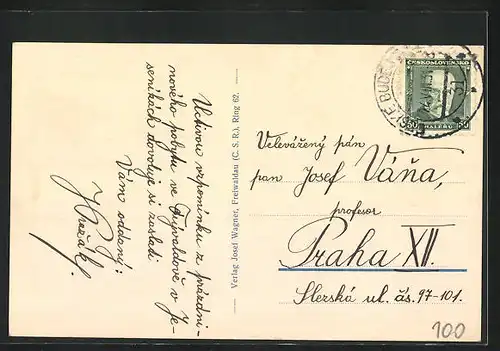 Uctivou vzpomínku z prázdni-
nového pobytu ve Frývaldově v Je-
seníkách dovoluje si zaslati
Vám oddaný:
Verlag Josef Wagner, Freiwaldau (C. S. R.), Ring 62.
ČESKOSLOVENSKO
50 HALÉŘŮ 50
Velevážený pán
pan Josef Váňa,
profesor
Praha XII.
Slezská ul. čís. 97-101.
100